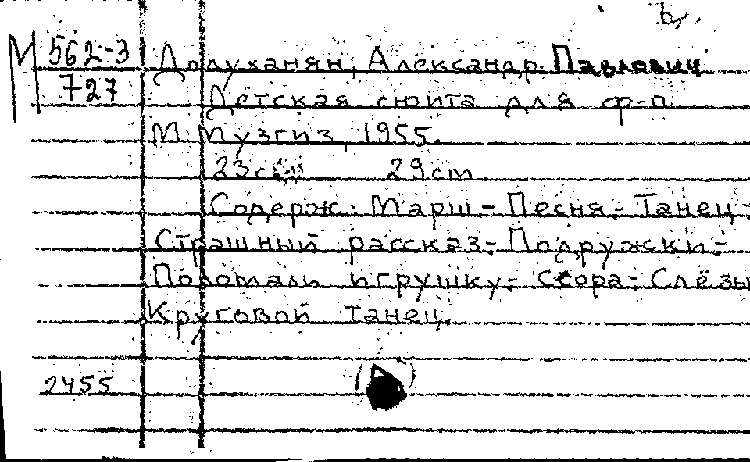 М 562-3 Долуханян, Александр Павлович
727 Детская сюита для ф-п.
М. Музгиз, 1955.
23с. 29cm.
Содерж: Марш - Песня - Танец -
Страшный рассказ - Подружки -
Поломали игрушку - Ссора - Слёзы
Круговой танец.
2455